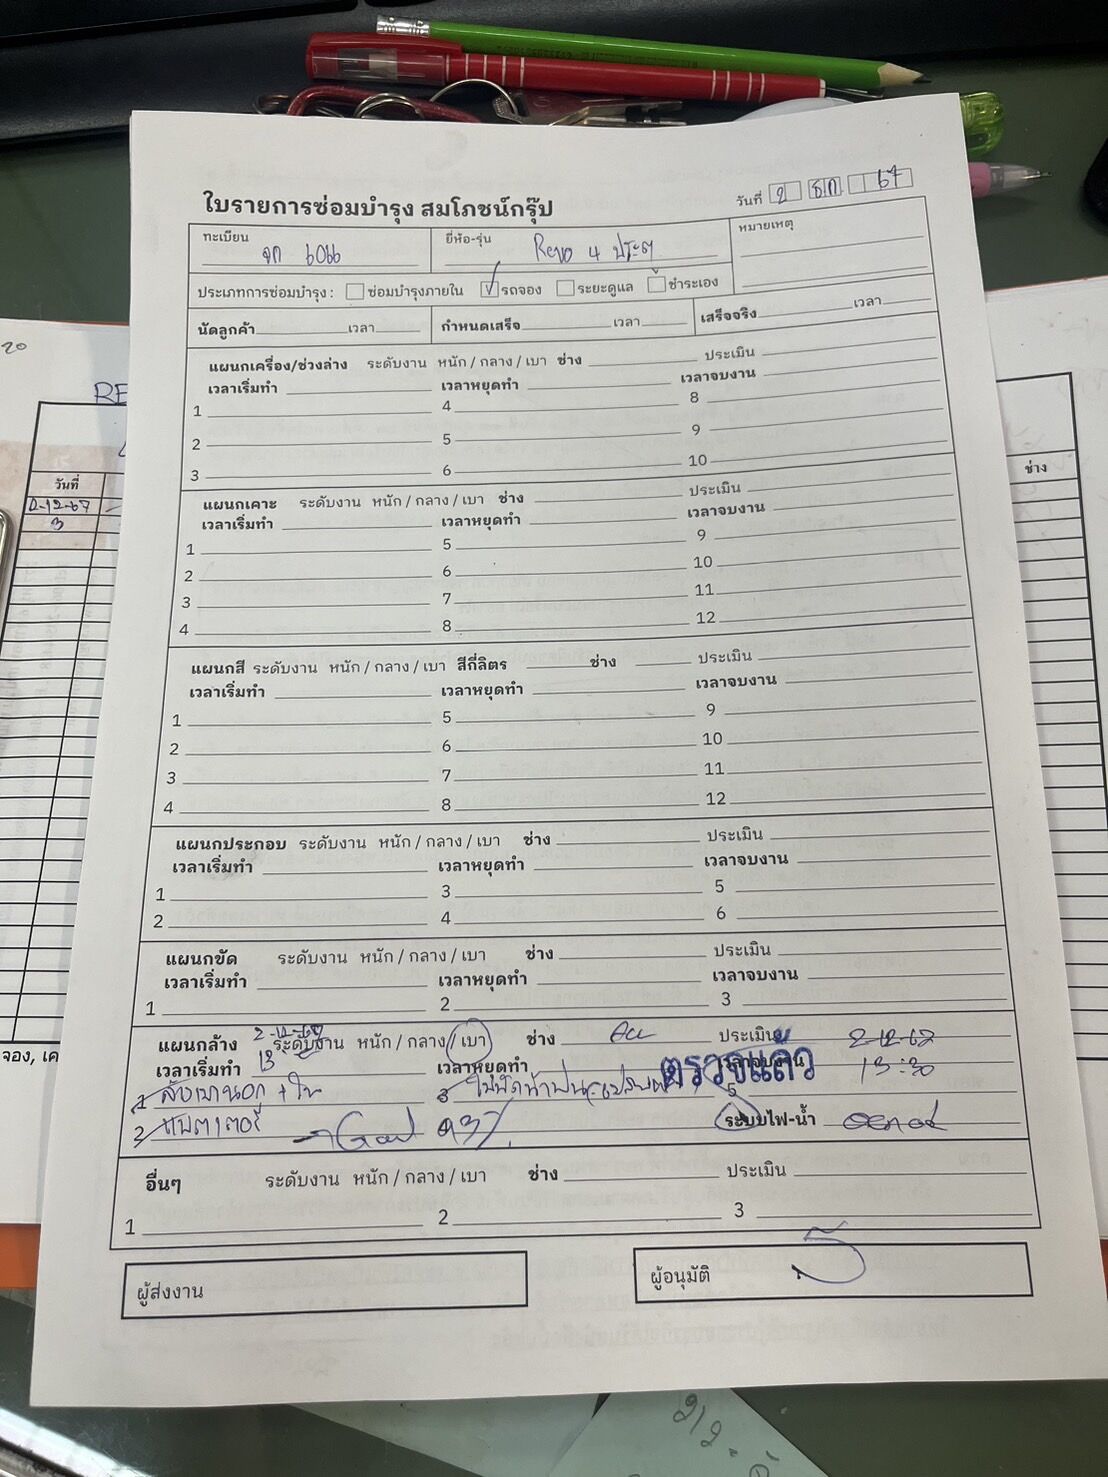 ใบรายการซ่อมบำรุง สมโภชน์กรุ๊ป
วันที่ 2 ธค 67
ทะเบียน ยี่ห้อ-รุ่น หมายเหตุ
6066 Revo 4 ประตู
ประเภทการซ่อมบำรุง : ซ่อมบำรุงภายใน รถจอง ระยะดูแล ชำระเอง
นัดลูกค้า เวลา กำหนดเสร็จ เวลา เสร็จจริง เวลา
แผนกเครื่อง/ช่วงล่าง ระดับงาน หนัก / กลาง / เบา ช่าง ประเมิน
เวลาเริ่มทำ เวลาหยุดทำ เวลาจบงาน
1 4 8
2 5 9
3 6 10
แผนกเคาะ ระดับงาน หนัก / กลาง / เบา ช่าง ประเมิน
เวลาเริ่มทำ เวลาหยุดทำ เวลาจบงาน
1 5 9
2 6 10
3 7 11
4 8 12
แผนกสี ระดับงาน หนัก / กลาง / เบา สีกี่ลิตร ช่าง ประเมิน
เวลาเริ่มทำ เวลาหยุดทำ เวลาจบงาน
1 5 9
2 6 10
3 7 11
4 8 12
แผนกประกอบ ระดับงาน หนัก / กลาง / เบา ช่าง ประเมิน
เวลาเริ่มทำ เวลาหยุดทำ เวลาจบงาน
1 3 5
2 4 6
แผนกขัด ระดับงาน หนัก / กลาง / เบา ช่าง ประเมิน
เวลาเริ่มทำ เวลาหยุดทำ เวลาจบงาน
1 2 3
แผนกล้าง 2-12-67 ระดับงาน หนัก / กลาง / เบา ช่าง ประเมิน 2-12-67
เวลาเริ่มทำ 13 เวลาหยุดทำ ตรวจแล้ว เวลาจบงาน 13:30
1 3 5
2 แบตเตอรี่ Good 93% ระบบไฟ-น้ำ
อื่นๆ ระดับงาน หนัก / กลาง / เบา ช่าง ประเมิน
1 2 3
ผู้ส่งงาน ผู้อนุมัติ
20
RE
วันที่
2-12-67
3
จอง, เค
ช่าง